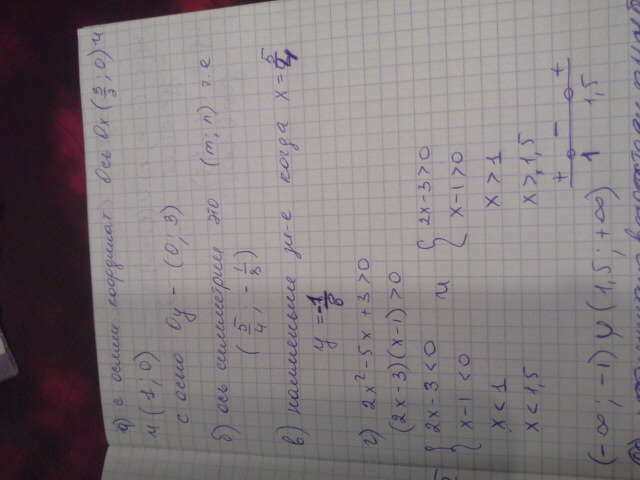 а) с осями координат Ось Ox (3/3; 0) и
и (1; 0)
с осью Oy - (0; 3)
б) ось симметрии это (m; n) т.е
(5/4; -1/8)
в) наименьшее зн-е когда x = 5/4
y = -1/8
г) 2x² - 5x + 3 > 0
(2x - 3)(x - 1) > 0
{ 2x - 3 < 0 и { 2x - 3 > 0
x - 1 < 0 x - 1 > 0
x < 1 x > 1
x < 1,5 x > 1,5
+ - +
1 1,5
(-∞; -1) ∪ (1,5; +∞)